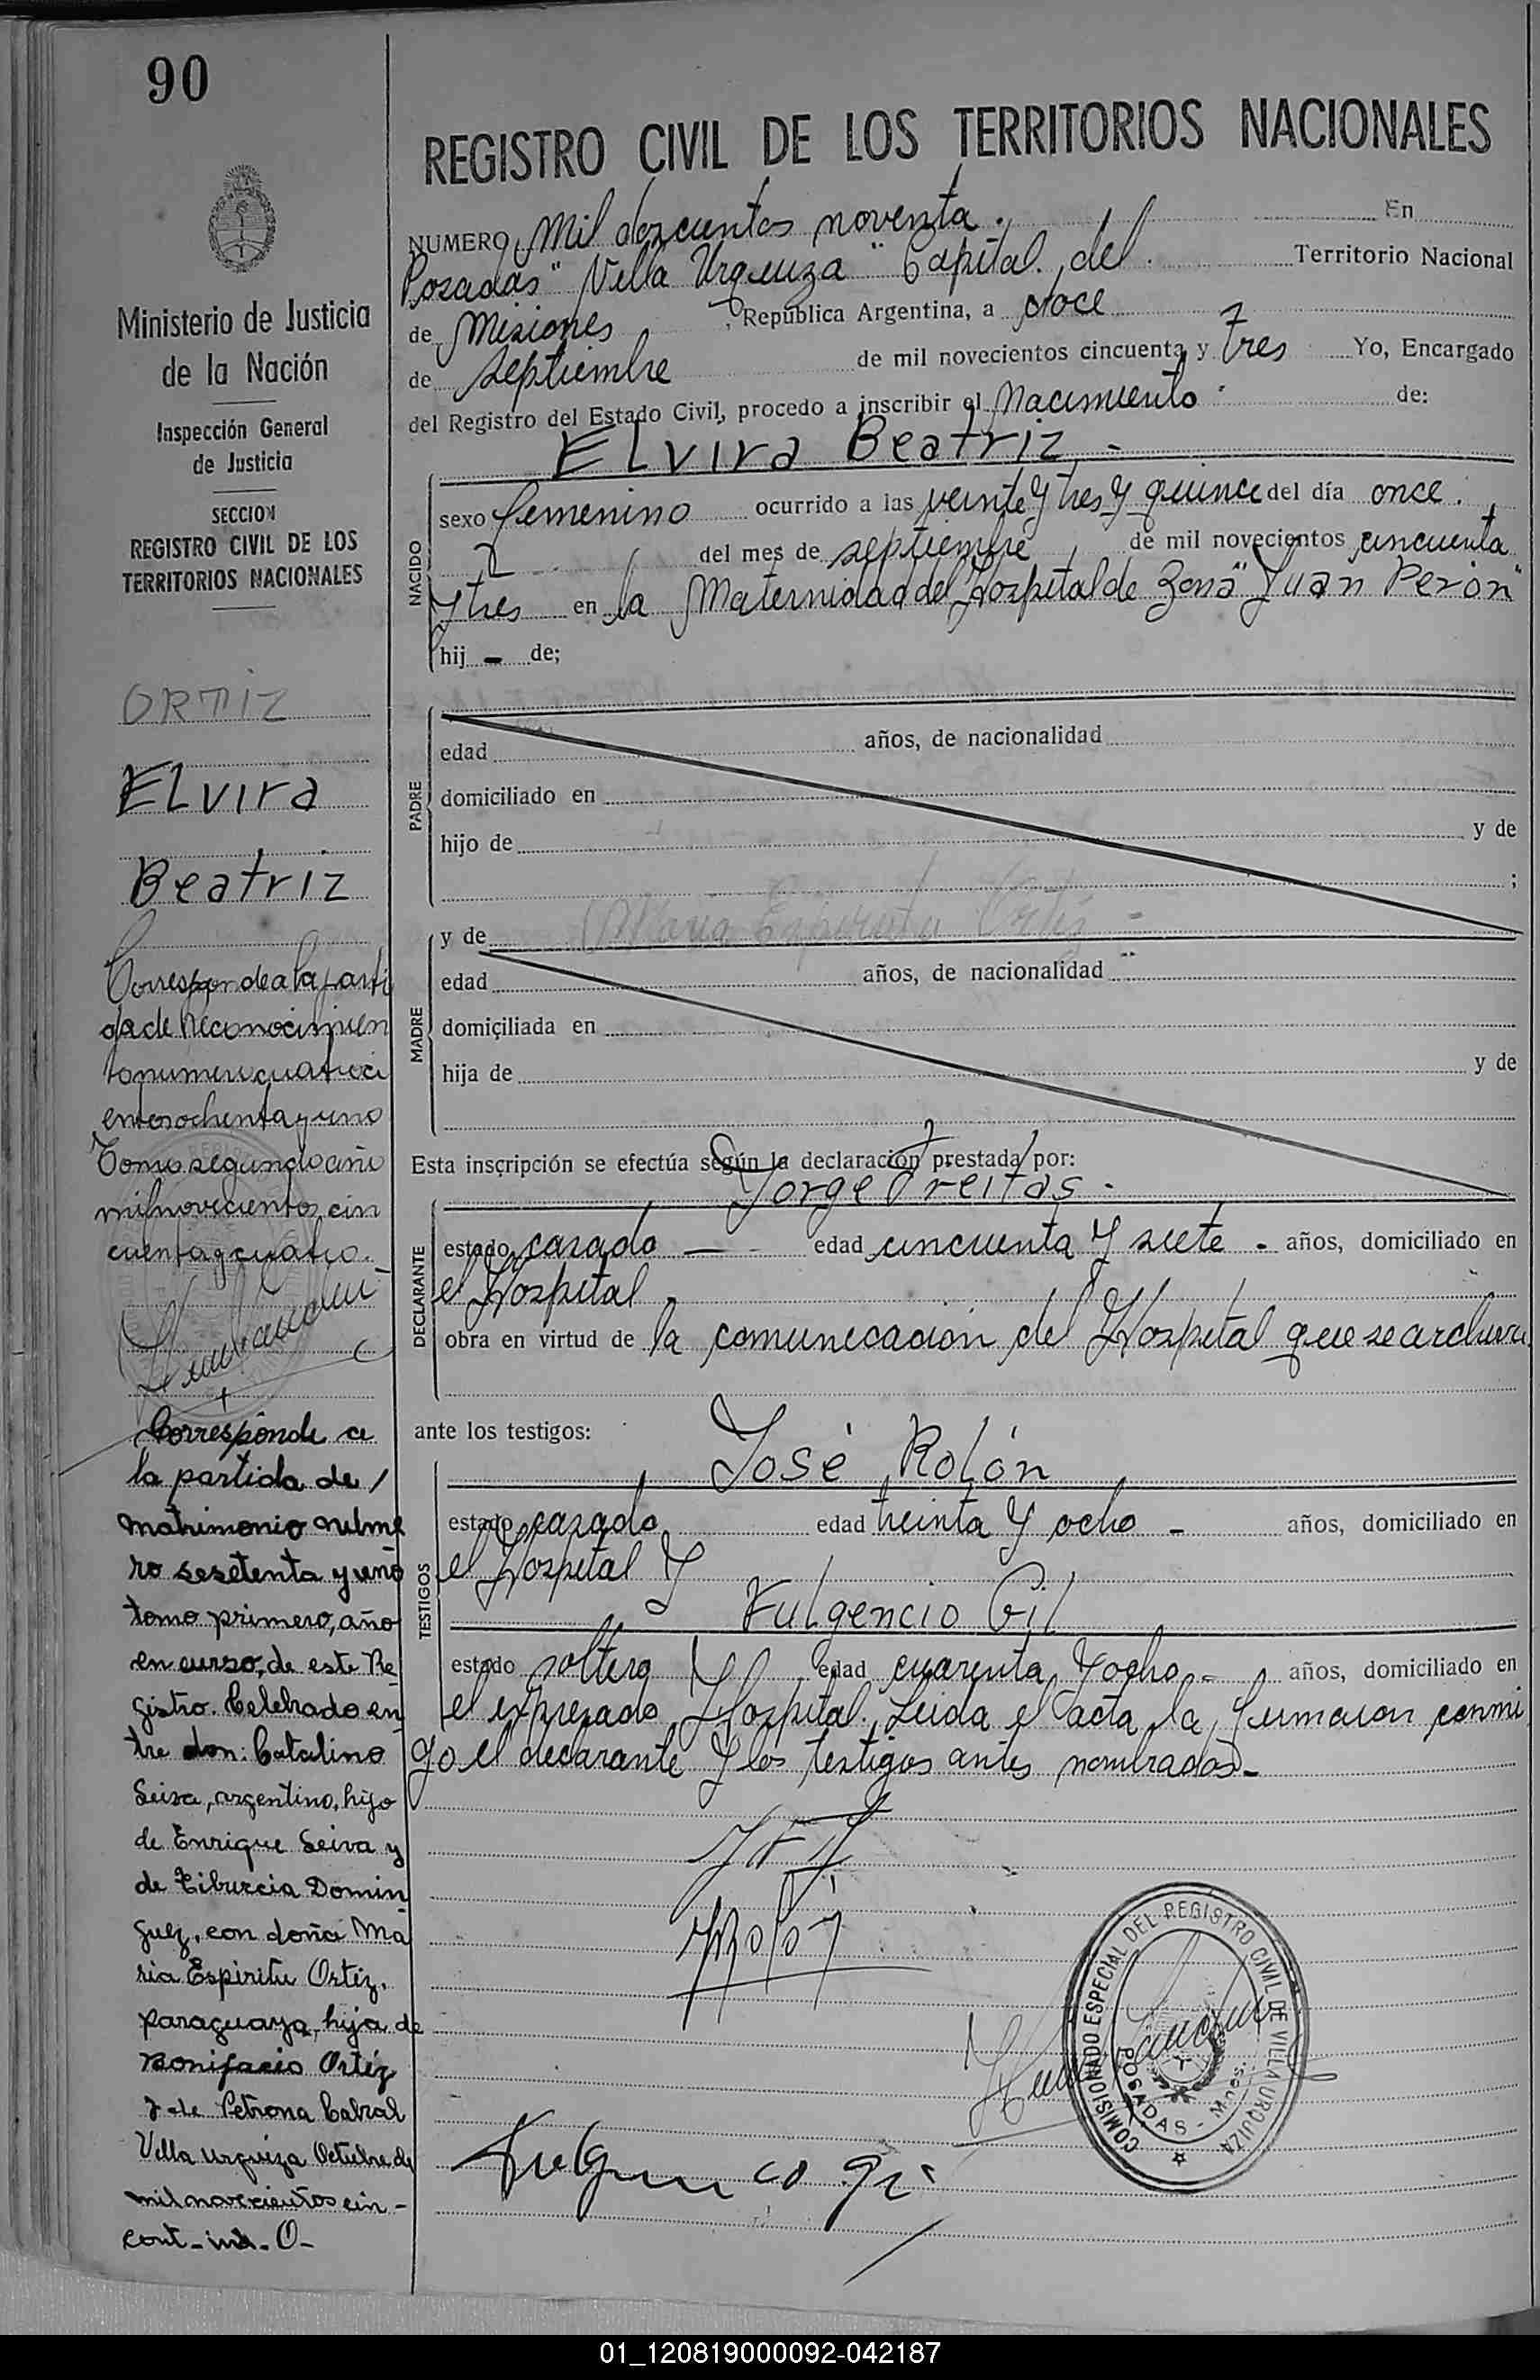 90
REGISTRO CIVIL DE LOS TERRITORIOS NACIONALES
NUMERO Mil doscientos noventa. En
Posadas "Villa Urquiza" Capital del Territorio Nacional
de Misiones, República Argentina, a doce
de septiembre de mil novecientos cincuenta y tres Yo, Encargado
del Registro del Estado Civil, procedo a inscribir el Nacimiento de:
ELvira Beatriz -
NACIDO
sexo femenino ocurrido a las veinte y tres y quince del día once.
del mes de septiembre, de mil novecientos cincuenta
y tres en la Maternidad del Hospital de Zona "Juan Perón"
hij - de;
PADRE
edad años, de nacionalidad
domiciliado en
hijo de y de
;
MADRE
y de Maria Espiritu Ortiz -
edad años, de nacionalidad
domiciliada en
hija de y de
Esta inscripción se efectúa según la declaración prestada por:
Jorge Freitas.
DECLARANTE
estado casado — edad cincuenta y siete - años, domiciliado en
el Hospital
obra en virtud de la comunicación del Hospital que se archiva
ante los testigos:
José Rolón
TESTIGOS
estado casado edad treinta y ocho - años, domiciliado en
el Hospital y
Fulgencio Gil
estado soltero edad cuarenta y ocho - años, domiciliado en
el expresado Hospital. Leida el acta, la firmaron conmi
go el declarante y los testigos antes nombrados-
COMISIONADO ESPECIAL DEL REGISTRO CIVIL DE VILLA URQUIZA
POSADAS - Mnes.
Ministerio de Justicia
de la Nación
Inspección General
de Justicia
SECCION
REGISTRO CIVIL DE LOS
TERRITORIOS NACIONALES
ORTIZ
ELvira
Beatriz
Corresponde a la parti
da de Reconocimien
to numero cuatroci
entos ochenta y uno
Tomo segundo año
mil novecientos cin
cuenta y cuatro.
Corresponde a
la partida de
matrimonio núme
ro sesetenta y uno
tomo primero, año
en curso, de este Re
gistro. Celebrado en
tre don: Catalino
Leiva, argentino, hijo
de Enrique Leiva y
de Tiburcia Domin
guez, con doña Ma
ria Espiritu Ortiz,
paraguaya, hija de
Bonifacio Ortiz
y de Petrona Cabral
Villa Urquiza Octubre de
mil novecientos cin-
01_120819000092-042187